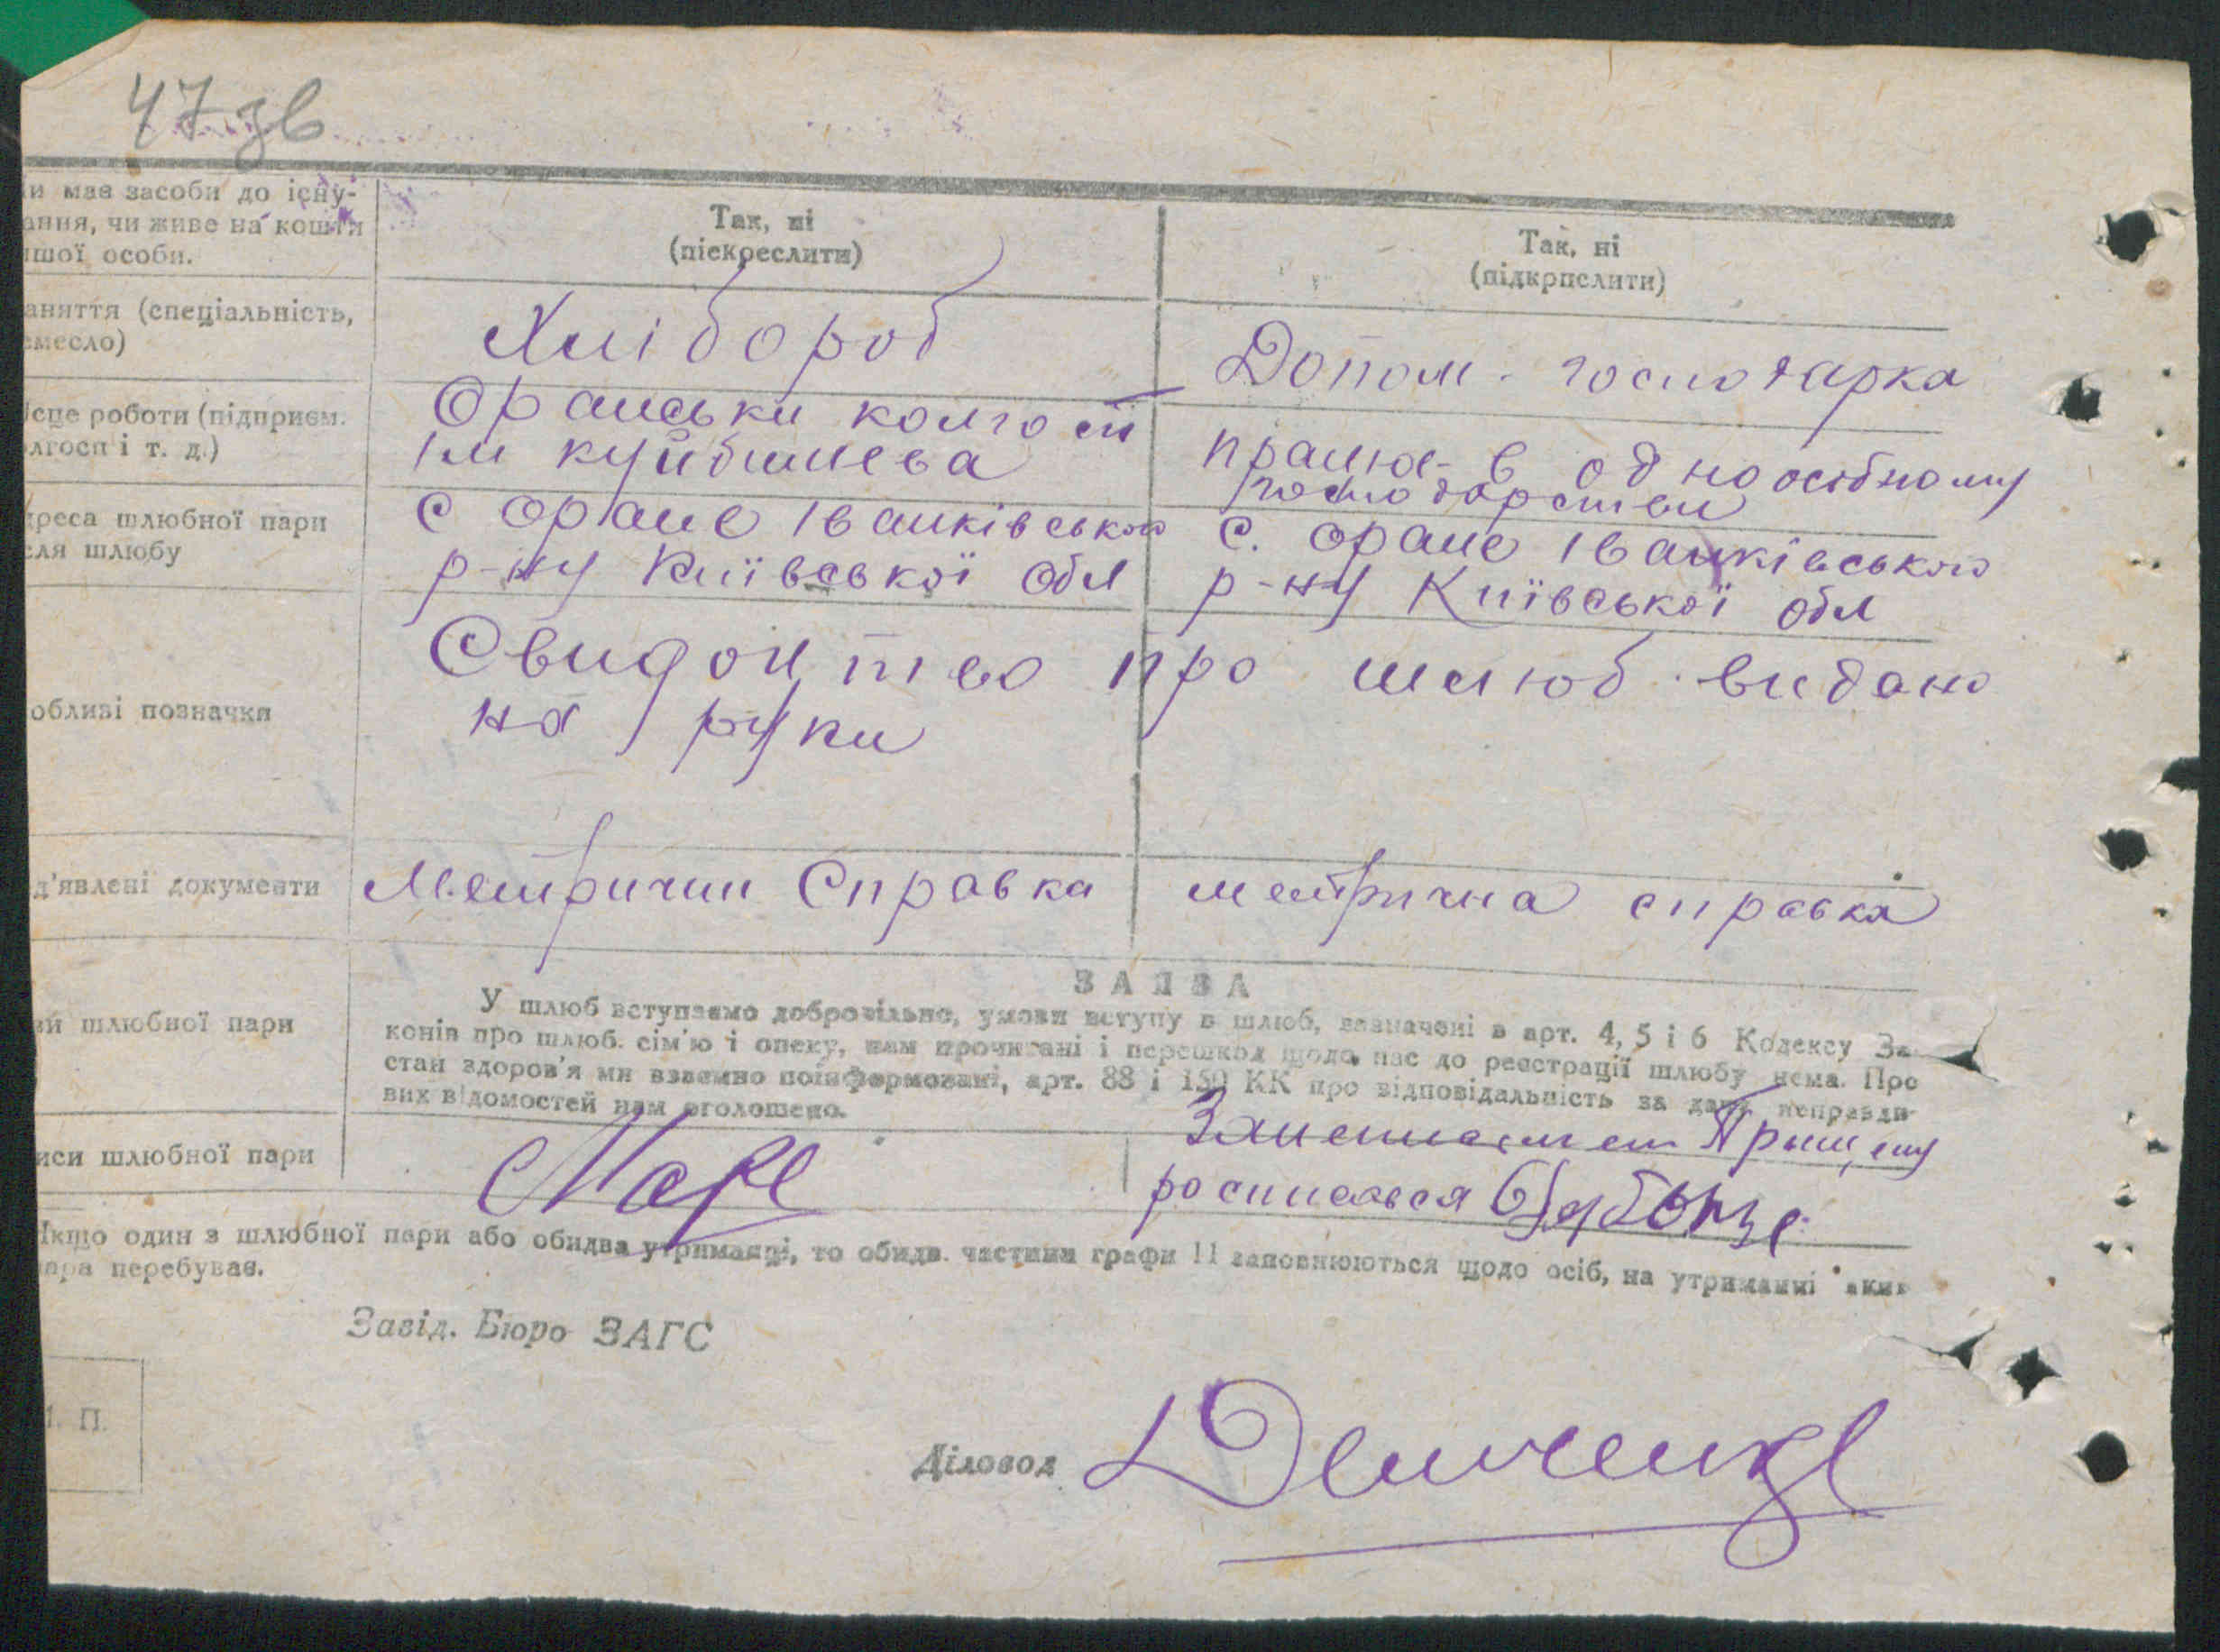 47 зв
и має засоби до існу-
ання, чи живе на кошти
ншої особи.
Так, ні
(піскреслити)
Так, ні
(підкрпслити)
аняття (спеціальність,
емесло)
Хлібороб
Допом. господарка
ісце роботи (підприєм.
олгосп і т. д.)
Оранськи колгосп
ім куйбишева
працює в одноосібному
господарстви
дреса шлюбної пари
сля шлюбу
с оране Іванківського
р-ну Київської обл
с. оране Іванківського
р-ну Київської обл
обливі позначки
Свидоцтво про шлюб видано
на руки
д'явлені документи
Метрични Справка
метрична справка
ЗАЯВА
ви шлюбної пари
У шлюб вступаємо добровільно, умови вступу в шлюб, зазначені в арт. 4, 5 і 6 Кодексу За-
конів про шлюб. сім'ю і опеку, нам прочитані і перешкод щодо нас до реєстрації шлюбу нема. Про
стан здоров'я ми взаємно поінформовані, арт. 88 і 150 КК про відповідальність за дачу неправди-
вих відомостей нам оголошено.
иси шлюбної пари
росписався
Якщо один з шлюбної пари або обидва утриманці, то обидв. частини графи 11 заповнюються щодо осіб, на утриманні яких
ара перебуває.
Завід. Бюро ЗАГС
М. П.
Діловод Демченко